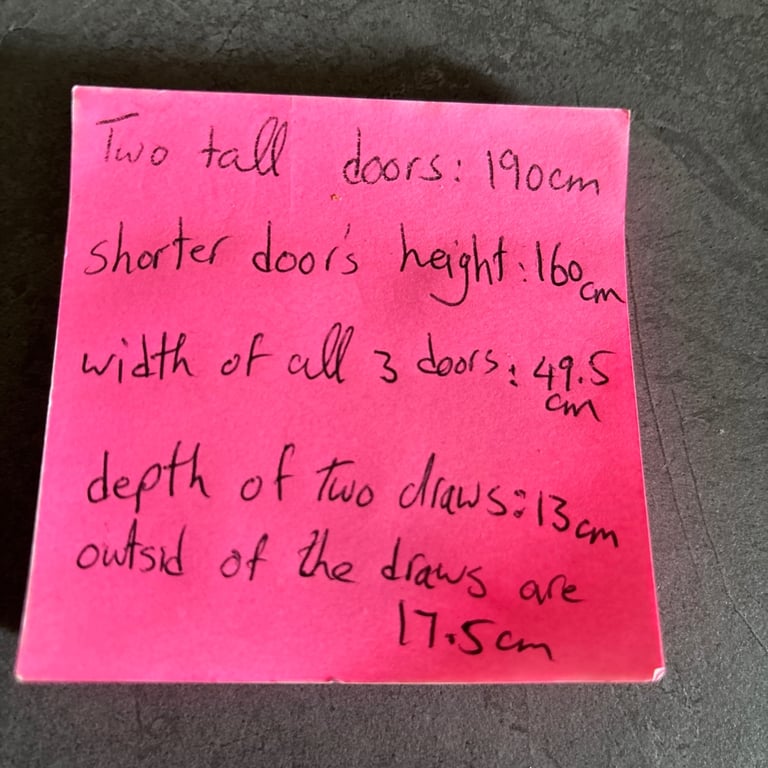 Two tall doors: 190cm
shorter door's height: 160cm
width of all 3 doors: 49.5
cm
depth of two draws: 13cm
outsid of the draws are
17.5cm